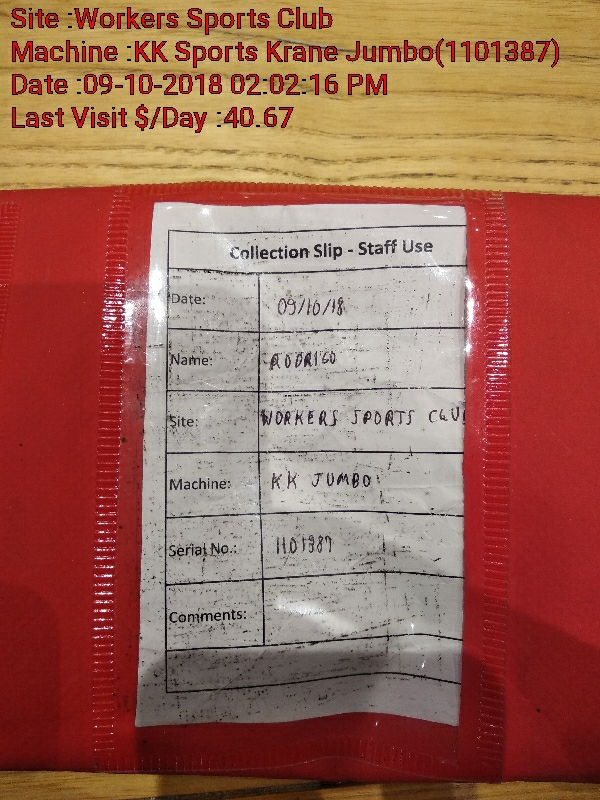 Site :Workers Sports Club
Machine :KK Sports Krane Jumbo(1101387)
Date :09-10-2018 02:02:16 PM
Last Visit $/Day :40.67
Collection Slip - Staff Use
Date: 09/10/18
Name: RODRIGO
Site: WORKERS SPORTS CLU
Machine: KK JUMBO
Serial No.: 1101387
Comments: